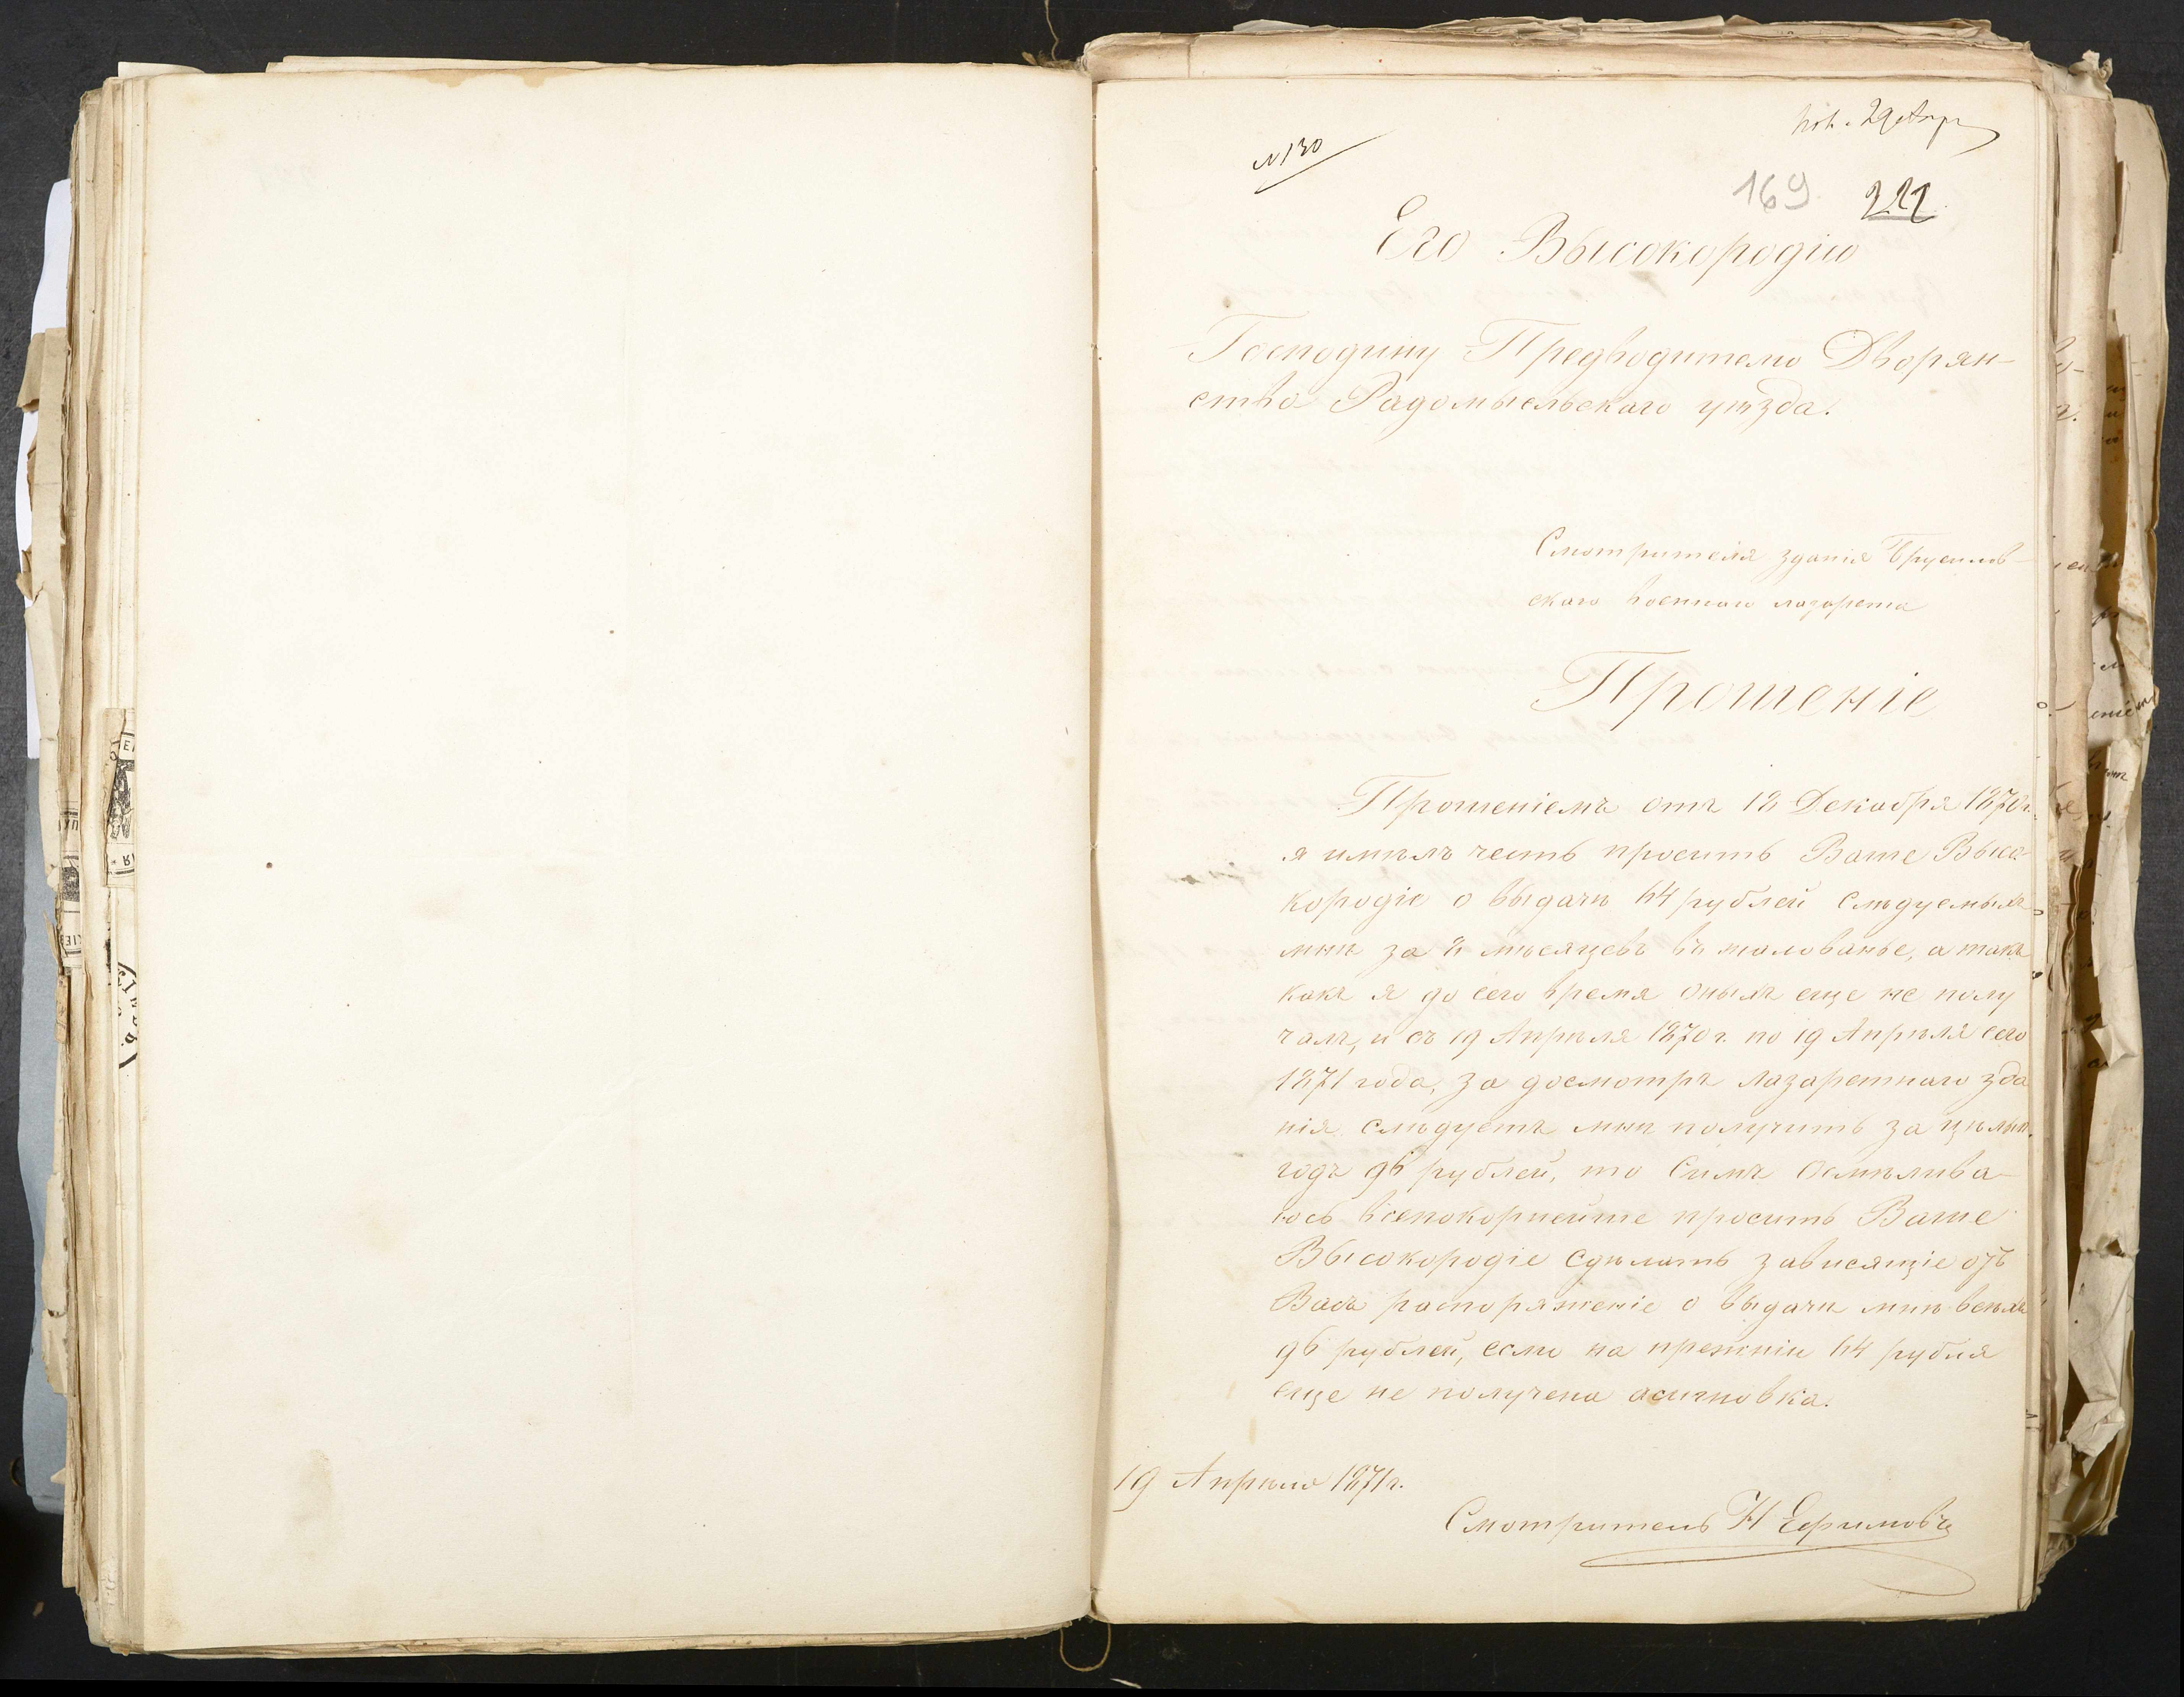 № 130
169 221
Его Высокородію
Господину Предводителю Дворян-
ства Радомысльскаго уѣзда.
Смотрителя зданія Брусилов-
скаго военнаго лазарета
Прошеніе
Прошеніемъ отъ 12 Декабря 1870 г.
я имѣлъ честь просить Ваше Высо-
кородіе о выдачѣ 64 рублей слѣдуемыхъ
мнѣ за 8 мѣсяцевъ въ жалованье, а такъ
какъ я до сего время оныхъ еще не полу
чалъ, и съ 19 Апрѣля 1870 г. по 19 Апрѣля сего
1871 года, за досмотръ лазаретнаго зда
нія слѣдуетъ мнѣ получить за цѣлый
годъ 96 рублей, то симъ осмѣлива-
юсь всепокорнейше просить Ваше
Высокородіе сдѣлать зависящіе отъ
Васъ распоряженіе о выдачѣ мнѣ всѣхъ
96 рублей, если на прежніи 64 рубля
еще не получена асигновка.
19 Апрѣля 1871 г.
Смотритель Н Ефимовъ